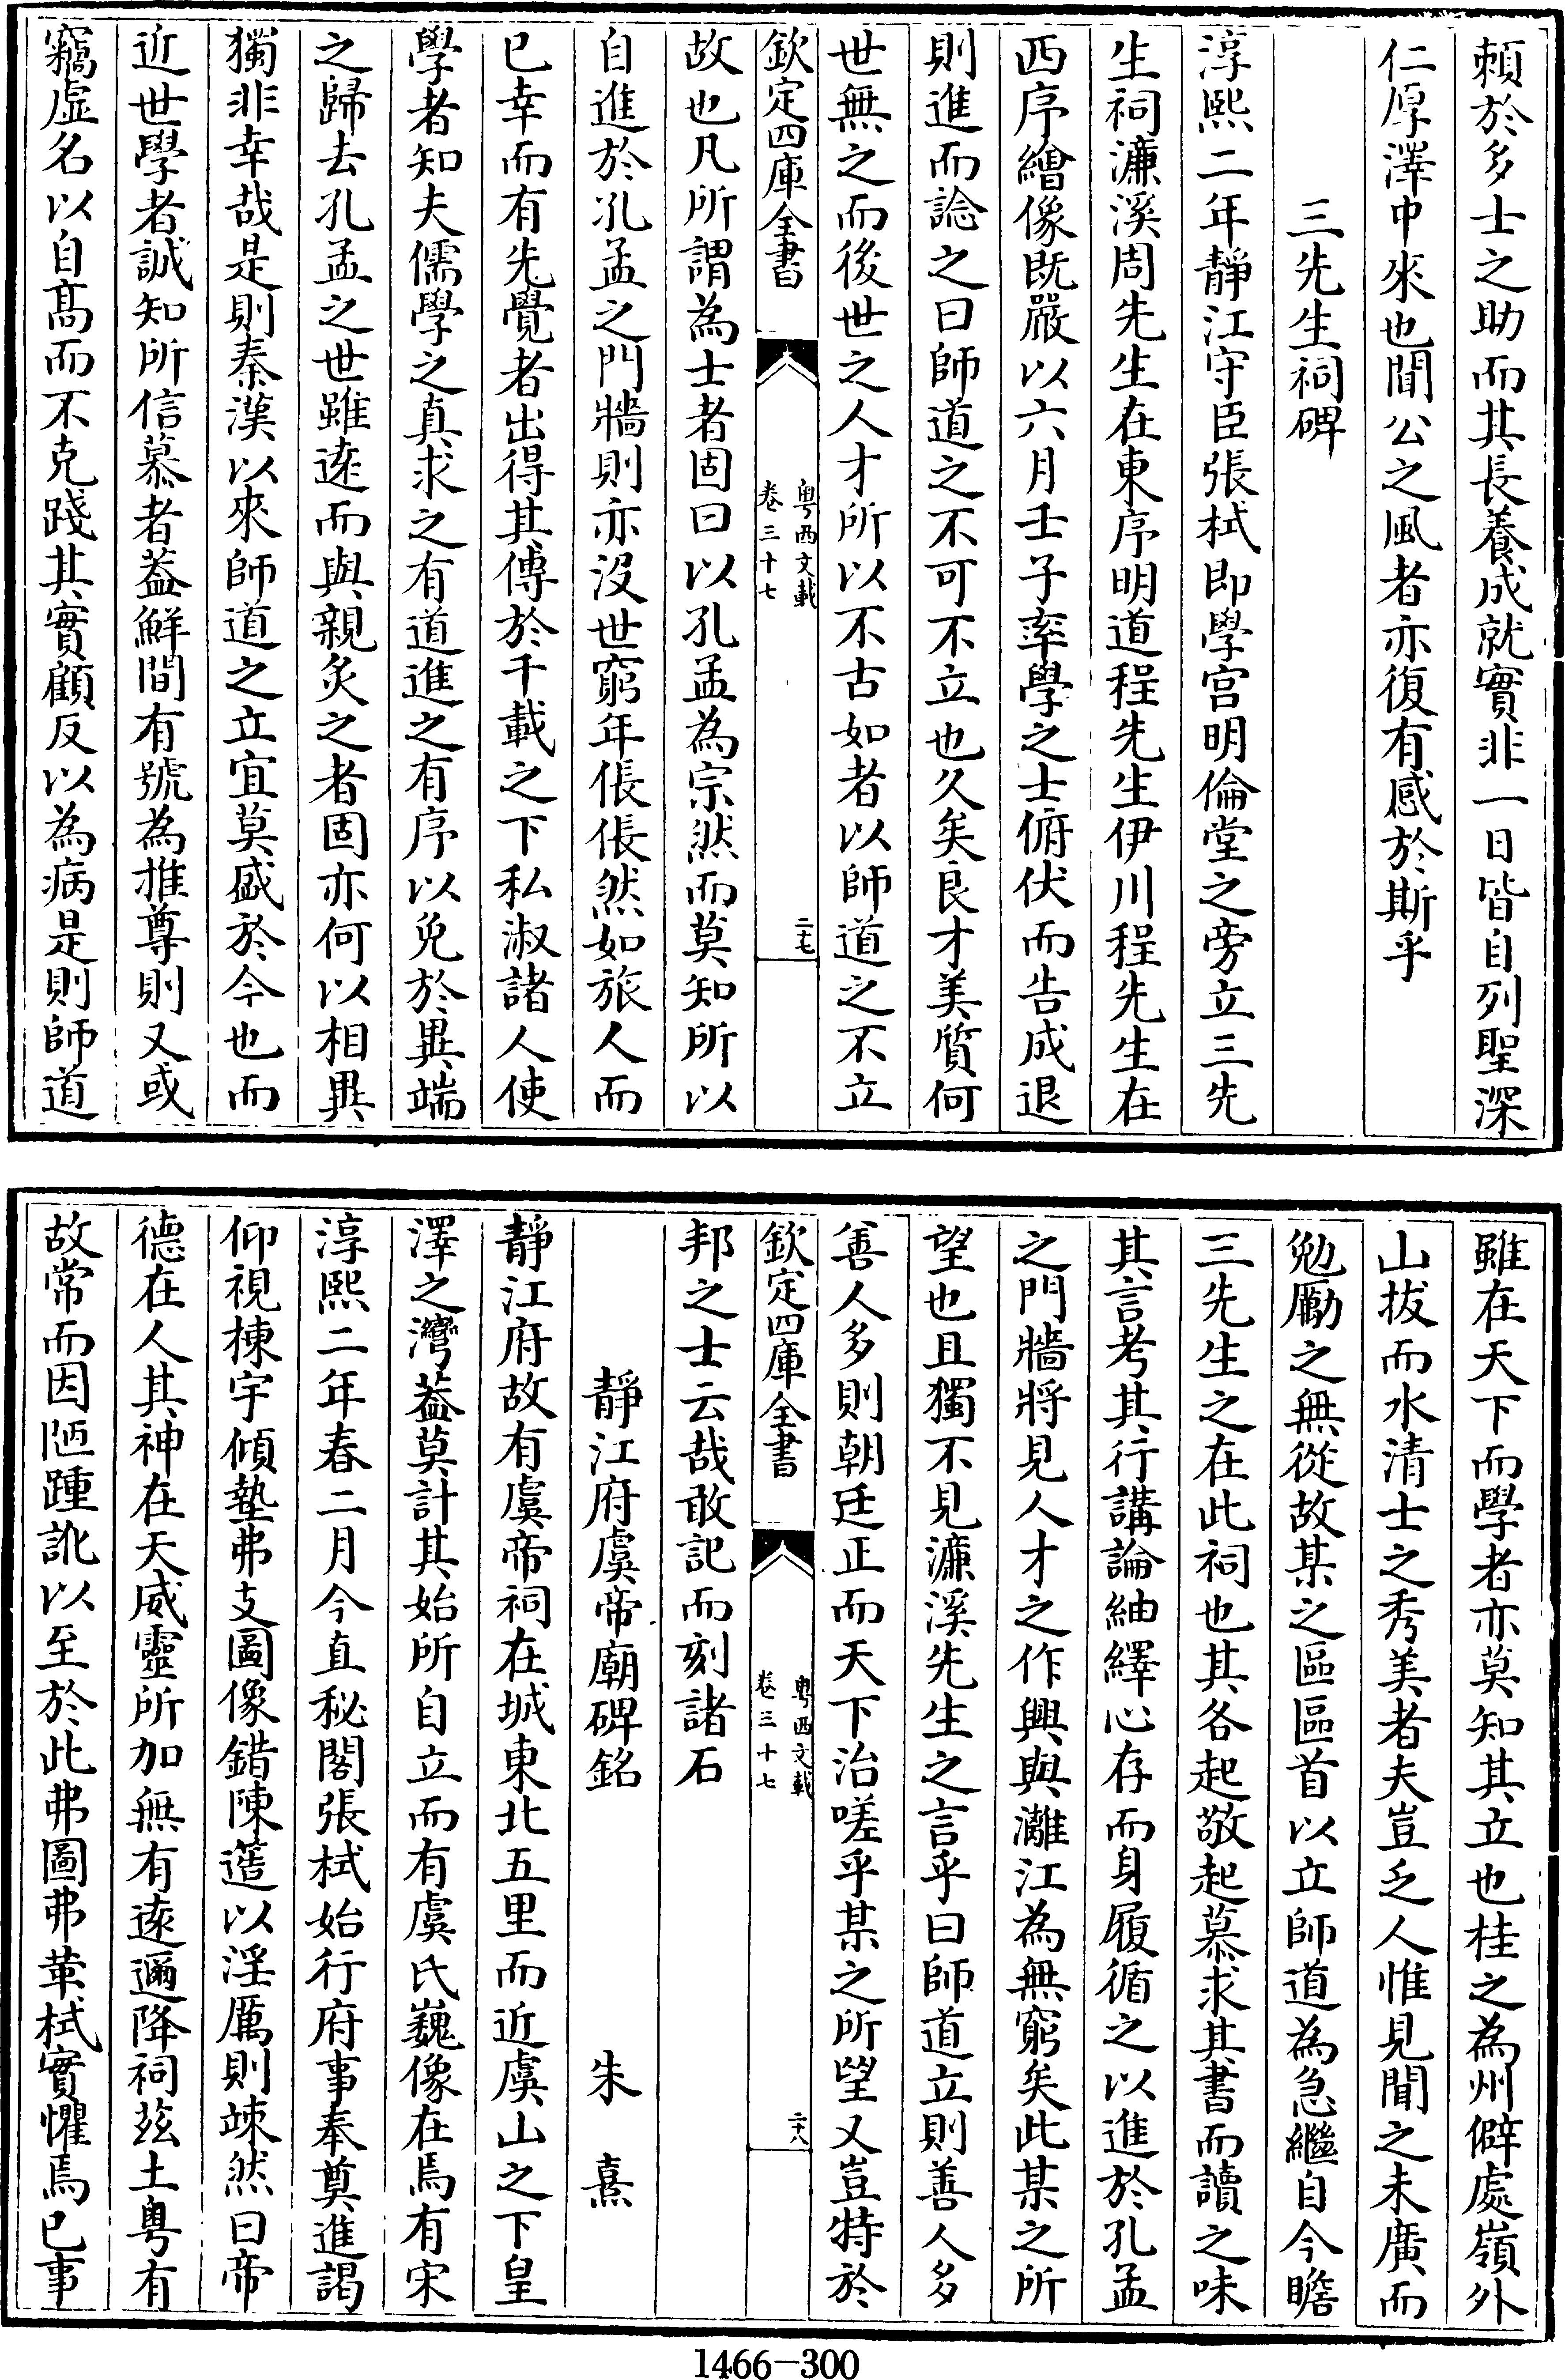 頼於多士之助而其長養成就實非一日皆自列聖深
仁厚澤中來也聞公之風者亦復有感於斯乎
三先生祠碑
淳熙二年靜江守臣張栻即學宫明倫堂之旁立三先
生祠濂溪周先生在東序明道程先生伊川程先生在
西序繪像既嚴以六月壬子率學之士俯伏而告成退
則進而諗之曰師道之不可不立也久矣良才美質何
世無之而後世之人才所以不古如者以師道之不立
欽定四庫全書
粤西文載
卷三十七
二十七
故也凡所謂為士者固曰以孔孟為宗然而莫知所以
自進於孔孟之門牆則亦沒世窮年倀倀然如旅人而
已幸而有先覺者出得其傳於千載之下私淑諸人使
學者知夫儒學之真求之有道進之有序以免於異端
之歸去孔孟之世雖逺而與親炙之者固亦何以相異
獨非幸哉是則秦漢以來師道之立宜莫盛於今也而
近世學者誠知所信慕者葢鮮間有號為推尊則又或
竊虚名以自髙而不克踐其實顧反以為病是則師道
雖在天下而學者亦莫知其立也桂之為州僻處嶺外
山拔而水清士之秀美者夫豈乏人惟見聞之未廣而
勉勵之無從故某之區區首以立師道為急繼自今瞻
三先生之在此祠也其各起敬起慕求其書而讀之味
其言考其行講論紬繹心存而身履循之以進於孔孟
之門牆將見人才之作興與灕江為無窮矣此某之所
望也且獨不見濂溪先生之言乎曰師道立則善人多
善人多則朝廷正而天下治嗟乎某之所望又豈特於
欽定四庫全書
粤西文載
卷三十七
二十八
邦之士云哉敢記而刻諸石
靜江府虞帝廟碑銘 朱熹
靜江府故有虞帝祠在城東北五里而近虞山之下皇
澤之灣葢莫計其始所自立而有虞氏巍像在焉有宋
淳熙二年春二月今直秘閣張栻始行府事奉奠進謁
仰視棟宇傾墊弗支圖像錯陳簉以淫厲則竦然曰帝
德在人其神在天威靈所加無有逺邇降祠茲土粤有
故常而因陋踵訛以至於此弗圖弗革栻實懼焉已事
1466-300